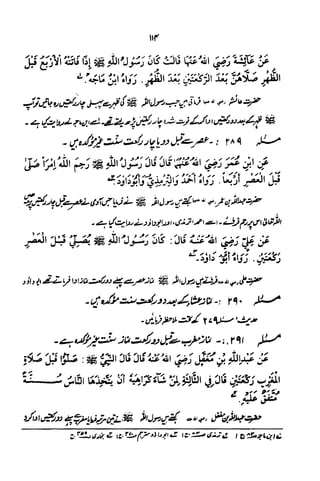 ۱۱۴
عَنْ عَائِشَةَ رَضِيَ اللهُ عَنْهَا قَالَتْ كَانَ رَسُوْلُ اللهِ ﷺ إِذَا فَاتَتْهُ الْأَرْبَعُ قَبْلَ
الظُّهْرِ صَلَّاهُنَّ بَعْدَ الرَّكْعَتَيْنِ بَعْدَ الظُّهْرِ. رَوَاهُ ابْنُ مَاجَه
حضرت عائشہ فرماتی ہیں جب رسول اللہ ﷺ کی ظہر سے پہلے چار رکعتیں رہ جاتیں تو آپ
ظہر کے بعد دو رکعتیں ادا کر کے فوت شدہ چار رکعتیں پڑھ لیتے تھے۔ اسے ابن ماجہ نے روایت کیا ہے۔
مسئلہ ۲۸۹ :- عصر سے قبل دو یا چار رکعت سنت غیر مؤکدہ ہیں۔
عَنِ ابْنِ عُمَرَ رَضِيَ اللهُ عَنْهُمَا قَالَ قَالَ رَسُوْلُ اللهِ ﷺ رَحِمَ اللهُ امْرَأً صَلَّى
قَبْلَ الْعَصْرِ أَرْبَعًا. رَوَاهُ أَحْمَدُ وَالتِّرْمِذِيُّ وَأَبُوْدَاوُدَ
حضرت عبداللہ بن عمر کہتے ہیں رسول اللہ ﷺ نے فرمایا جس آدمی نے عصر سے قبل چار رکعتیں پڑھیں
اللہ تعالیٰ اس پر رحم فرمائے۔ اسے احمد، ترمذی، اور ابوداؤد نے روایت کیا ہے۔
عَنْ عَلِيٍّ رَضِيَ اللهُ عَنْهُ قَالَ : كَانَ رَسُوْلُ اللهِ ﷺ يُصَلِّي قَبْلَ الْعَصْرِ
رَكْعَتَيْنِ. رَوَاهُ أَبُوْ دَاوُدَ.
حضرت علی فرماتے ہیں رسول اللہ ﷺ نماز عصر سے پہلے دو رکعت نماز ادا فرماتے تھے۔ ابوداؤد
مسئلہ ۲۹۰ :- نماز عشاء کے بعد دو رکعت سنت مؤکدہ ہیں۔
حدیث مسئلہ ۲۷۹ کے تحت ملاحظہ فرمائیں۔
مسئلہ ۲۹۱ :- نماز مغرب سے قبل دو رکعت نماز سنت غیر مؤکدہ ہے۔
عَنْ عَبْدِاللهِ بْنِ مُغَفَّلٍ رَضِيَ اللهُ عَنْهُ قَالَ قَالَ النَّبِيُّ ﷺ : صَلُّوْا قَبْلَ صَلَاةِ
الْمَغْرِبِ رَكْعَتَيْنِ قَالَ فِي الثَّالِثَةِ لِمَنْ شَاءَ كَرَاهِيَةَ أَنْ يَتَّخِذَهَا النَّاسُ سُنَّةً
مُتَّفَقٌ عَلَيْهِ.
حضرت عبداللہ بن مغفل کہتے ہیں رسول اللہ ﷺ نے تین مرتبہ فرمایا مغرب سے پہلے دو رکعتیں ادا کرو